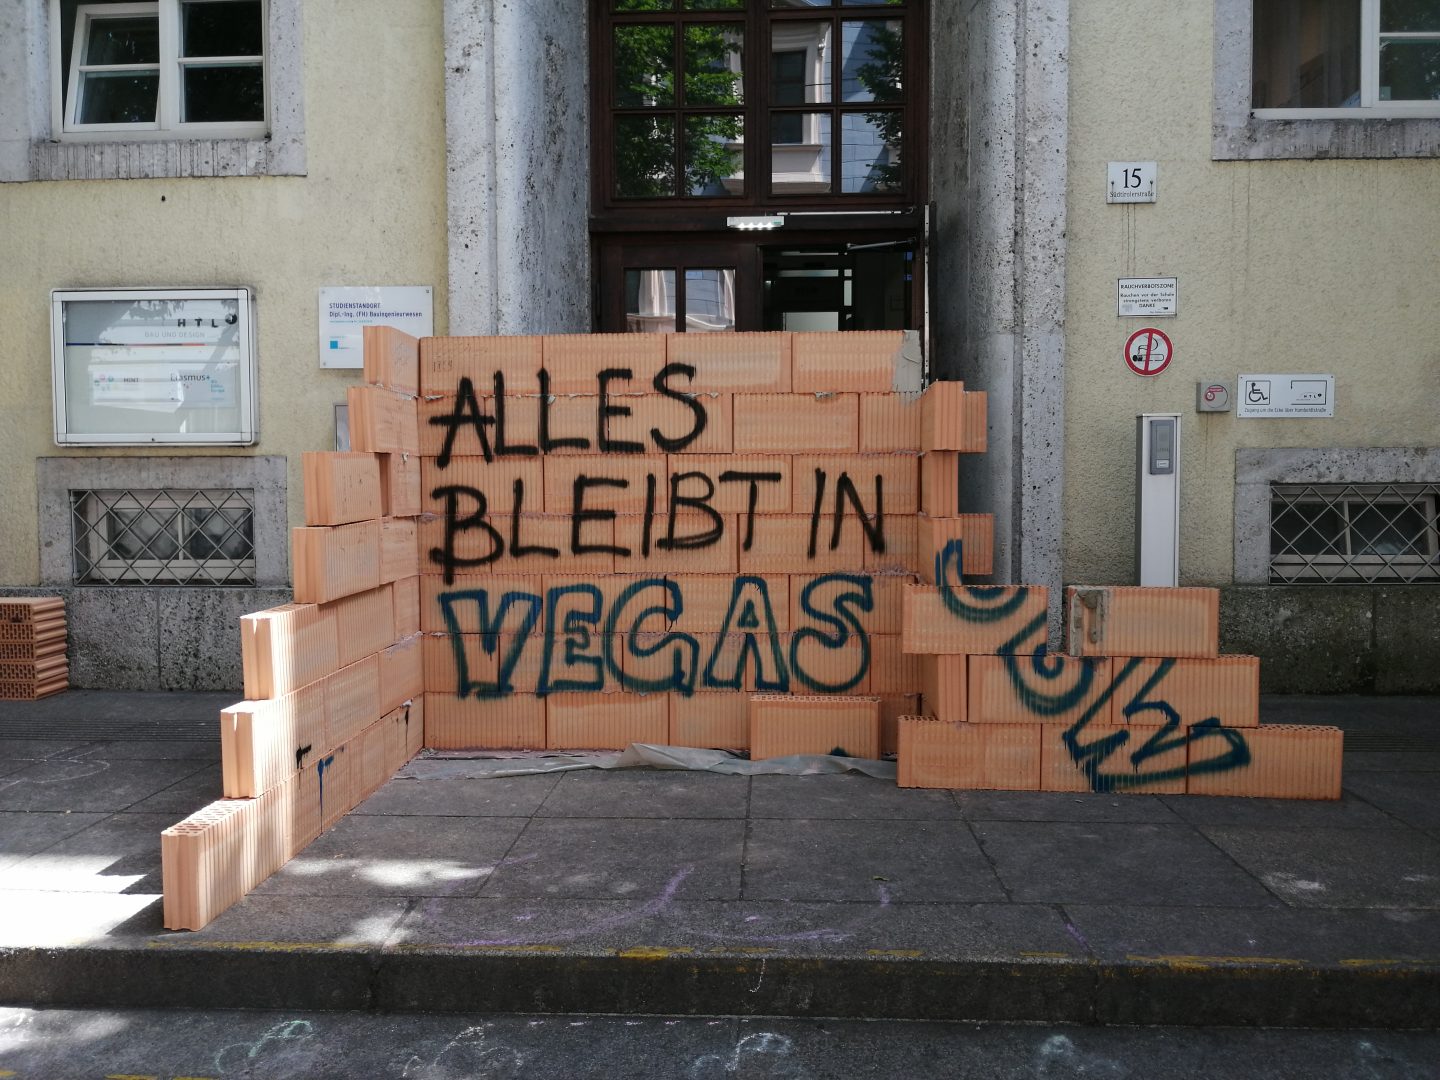 15
Südtirolerstraße
RAUCHVERBOTSZONE
Rauchen vor der Schule
strengstens verboten
DANKE
STUDIENSTANDORT
Dipl.-Ing. (FH) Bauingenieurwesen
HTL
BAU UND DESIGN
MINT
Erasmus+
HTL
Zugang um die Ecke über Humboldtstraße
ALLES
BLEIBT IN
VEGAS